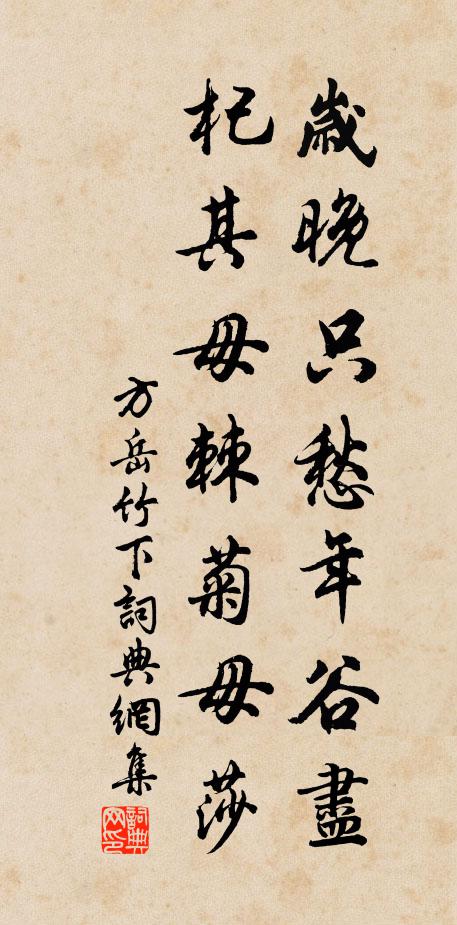 歲晚只愁年谷盡
杞其毋棘菊毋莎
方岳竹下詞典網集
詞典網印